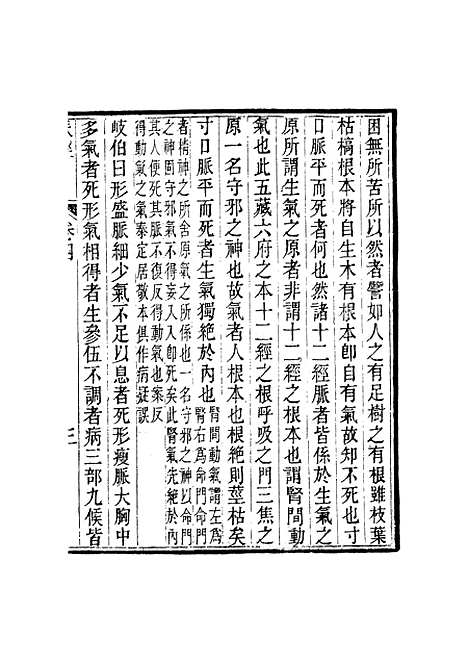 困無所苦所以然者譬如人之有足樹之有根雖枝葉
枯槁根本將自生木有根本即自有氣故知不死也寸
口脈平而死者何也然諸十二經脈者皆係於生氣之
原所謂生氣之原者非謂十二經之根本也謂腎間動
氣也此五藏六府之本十二經之根呼吸之門三焦之
原一名守邪之神也故氣者人根本也根絕則莖枯矣
寸口脈平而死者生氣獨絕於內也腎間動氣謂左為
腎右為命門命門
者精神之所舍原氣之所係也一名守邪之神以命門
之神固守邪氣不得妄入入即死矣此腎氣先絕於內
其人便死其脈不復反得動氣也案反
得動氣之氣泰定居敬本俱作病疑誤
岐伯曰形盛脈細少氣不足以息者死形瘦脈大胸中
多氣者死形氣相得者生參伍不調者病三部九候皆
卷四
三